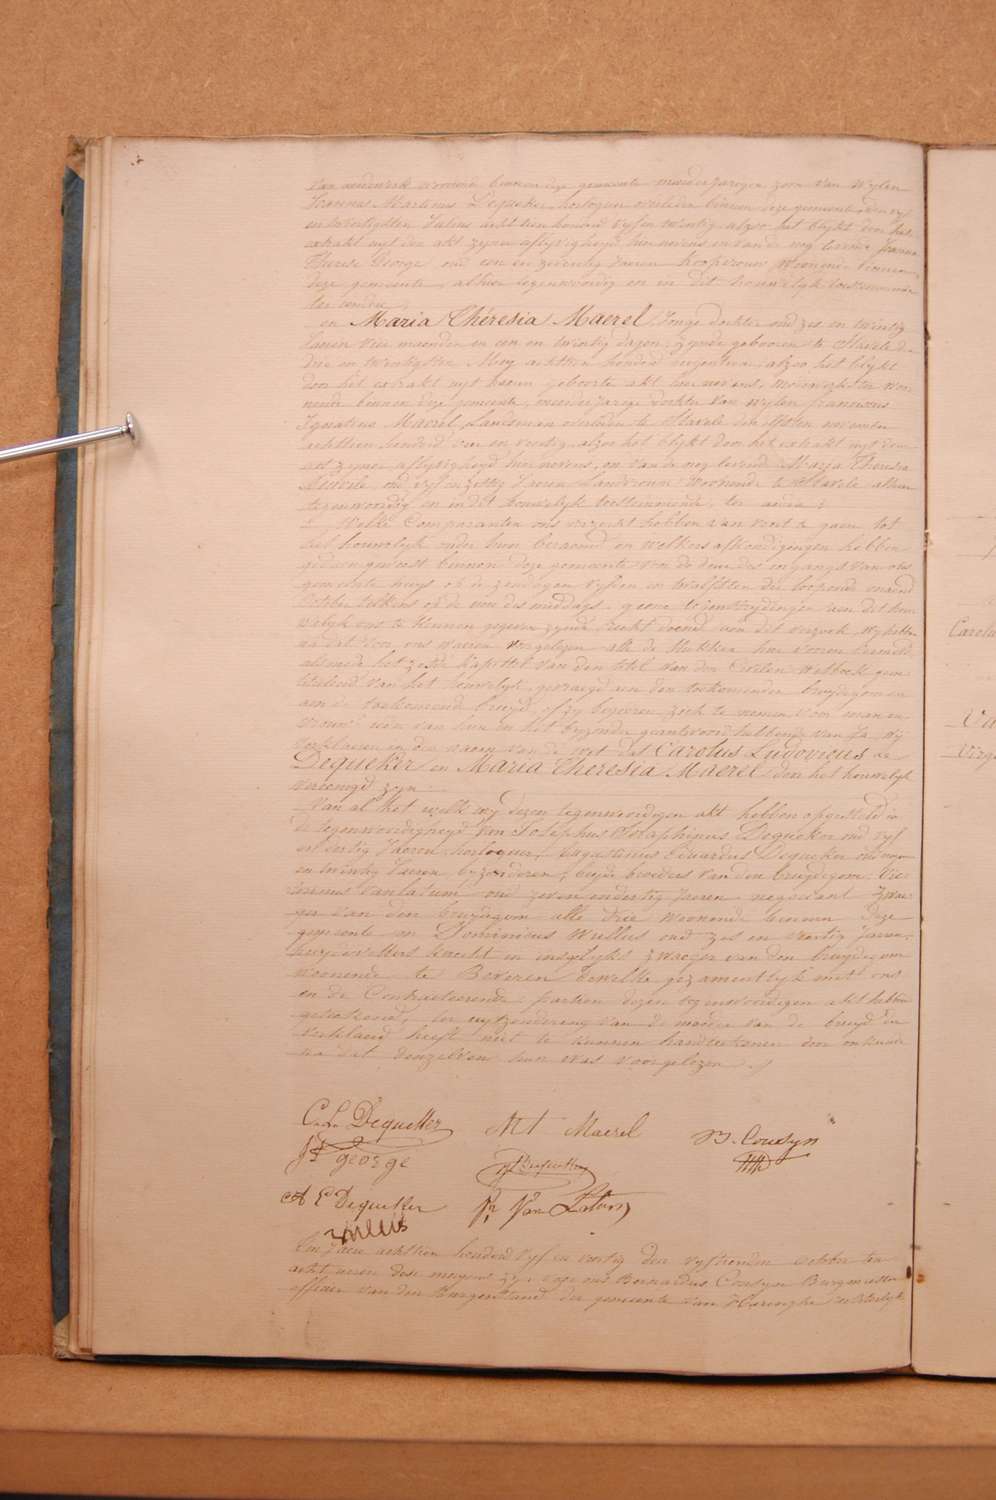 van ambacht woonende binnen deze gemeente meerderjarigen zoon van wylen
Martinus Dequeker, horlogier overleden binnen deze gemeente den vyf
en twintigsten Julius achttien honderd vyf en twintig alzoo het blykt door het
extrakt uyt den akt zyner aflyvigheyd hier nevens en van de nog levende Joanna
Therese George oud een en zeventig Jaeren koopvrouw woonende binnen
deze gemeente alhier tegenwoordig en in dit houwelyk toestemmende
ter eendre
en Maria Théresia Maerel, Jonge dochter oud zes en twintig
Jaeren vier maenden en een en twintig dagen, zynde gebooren te Stavele den
drie en twintigsten Mey achttien honderd negentien alzoo het blykt
door het extrakt uyt haeren geboorte akt hier nevens, woo-
nende binnen deze gemeente, meerderjarige dochter van wylen franciscus
Ignatius Maerel Landsman overleden te Stavele den november
achttien honderd een en veertig, alzoo het blykt door het extrakt uyt den
akt zyner aflyvigheyd hier nevens, en van de nog levende Maria Theresia
oud vyf en zestig Jaeren Landvrouw woonende te Stavele alhier
tegenwoordig en in dit houwelyk toestemmende, ter andre
Welke Comparanten ons verzocht hebben van voort te gaen tot
het houwelyk onder hun beraemd en welkers afkondigingen hebben
gedaen geweest binnen deze gemeente voor de deure des ingangs van ons
gemeente huys op de zondagen vyfden en twaelfsten der loopende maend
October telkens op de uere des middags, geene tegenstrydingen aen dit hou-
welyk ons te kennen gegeven zynde, recht doende aen dit verzoek, wy hebben
na dat door ons waeren voorgelezen alle de stukken hier vooren gemeld
alsmede het zesde kapittel van den titel van den Civilen Wetboek gein-
tituleerd van het houwelyk, gevraegd aen den toekomenden bruydegom en
aen de toekomende bruyd of zy begeeren zich te nemen voor man en
vrouw, ider van hun in het byzonder geantwoord hebbende van Ja, wy
verklaeren in den naem van de wet dat Carolus Ludovicus de
Dequeker en Maria Theresia Maerel door het houwelyk
vereenigd zyn.
Van al het welk wy dezen tegenwoordigen akt hebben opgesteld in
de tegenwoordigheyd van Josephus Seraphinus Dequeker oud vyf
en dertig Jaeren, horlogier, Augustinus Eduardus Dequeker oud
en twintig Jaeren byzonderen, beyde broeders van den bruydegom,
Vanlatum oud zeven en dertig Jaeren negociant zwae-
ger van den bruydegom alle drie woonende binnen deze
gemeente en Dominicus Willus oud zes en veertig Jaeren
knecht en insgelyks zwaeger van den bruydegom
woonende te Beveren dewelke gezamentlyk met ons
en de Contracteerende partien dezen tegenwoordigen akt hebben
geteekend, ter uytzondering van de moeder van de bruyd die
verklaerd heeft niet te kunnen handteekenen door onkunde
na dat denzelven hun was voorgelezen
C.L. Dequeker M T Maerel B. Cousyn
J T George J S Dequeker
A E Dequeker Van Latum
Willus
In Jaere achttien honderd vyf en veertig den vyftienden october ten
acht ueren des morgens zyn voor ons Bernardus Cousyn Burgemeester
officier van den Burgerstand der gemeente van Haringhe